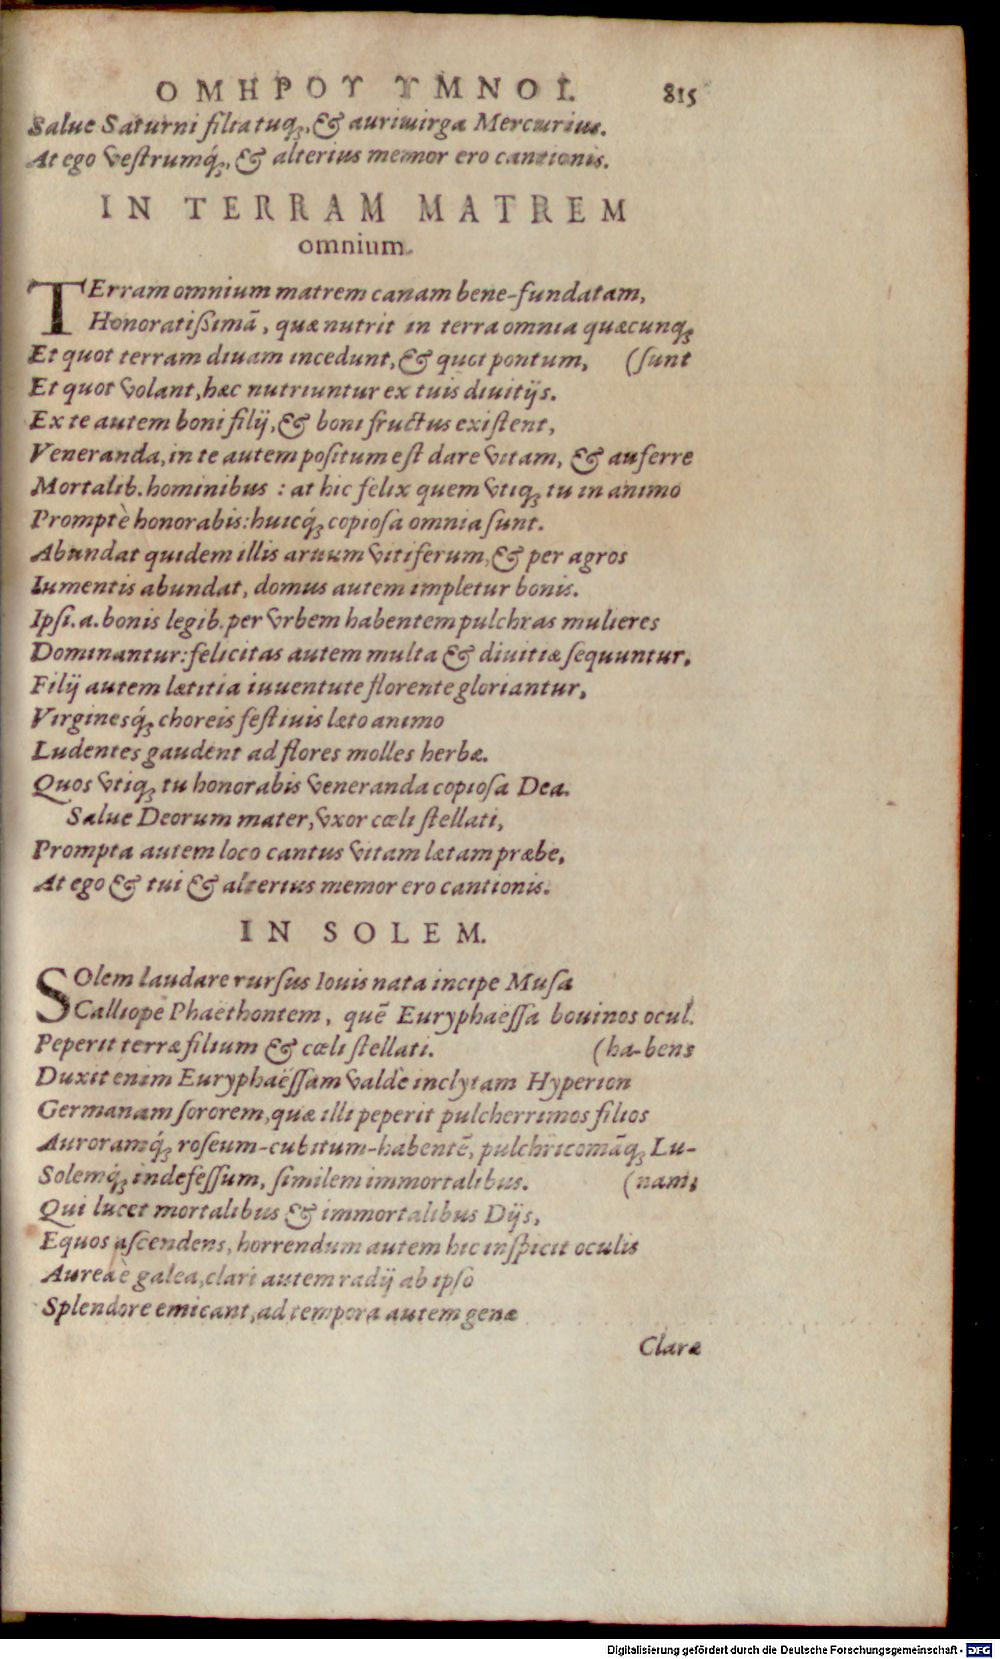 ΟΜΗΡΟΥ ΥΜΝΟΙ. 815
Salue Saturni filia tuq́ꝫ, & auriuirga Mercurius.
At ego vestrumq́ꝫ, & alterius memor ero cantionis.
IN TERRAM MATREM
omnium.
TErram omnium matrem canam bene-fundatam,
Honoratißimā, quæ nutrit in terra omnia quæcunqꝫ
Et quot terram diuam incedunt, & quot pontum, (sunt
Et quot volant, hæc nutriuntur ex tuis diuitijs.
Ex te autem boni filij, & boni fructus existent,
Veneranda, in te autem positum est dare vitam, & auferre
Mortalib. hominibus : at hic felix quem vtiqꝫ tu in animo
Promptè honorabis: huicq́ꝫ copiosa omnia sunt.
Abundat quidem illis aruum vitiferum, & per agros
Iumentis abundat, domus autem impletur bonis.
Ipsi. a. bonis legib. per vrbem habentem pulchras mulieres
Dominantur: felicitas autem multa & diuitiæ sequuntur,
Filij autem lætitia iuuentute florente gloriantur,
Virginesq́ꝫ choreis festiuis læto animo
Ludentes gaudent ad flores molles herbæ.
Quos vtiqꝫ tu honorabis veneranda copiosa Dea.
Salue Deorum mater, vxor cœli stellati,
Prompta autem loco cantus vitam lætam præbe,
At ego & tui & alterius memor ero cantionis.
IN SOLEM.
SOlem laudare rursus Iouis nata incipe Musa
Calliope Phaethontem, quē Euryphaëssa bouinos ocul.
Peperit terræ filium & cœli stellati. (ha-bens
Duxit enim Euryphaëssam valde inclytam Hyperion
Germanam sororem, quæ illi peperit pulcherrimos filios
Auroramq́ꝫ roseum-cubitum-habentē, pulchricomāqꝫ Lu-
Solemq́ꝫ indefessum, similem immortalibus. (nam,
Qui lucet mortalibus & immortalibus Dijs,
Equos ascendens, horrendum autem hic inspicit oculis
Aurea è galea, clari autem radij ab ipso
Splendore emicant, ad tempora autem genæ
Claræ
Digitalisierung gefördert durch die Deutsche Forschungsgemeinschaft - DFG